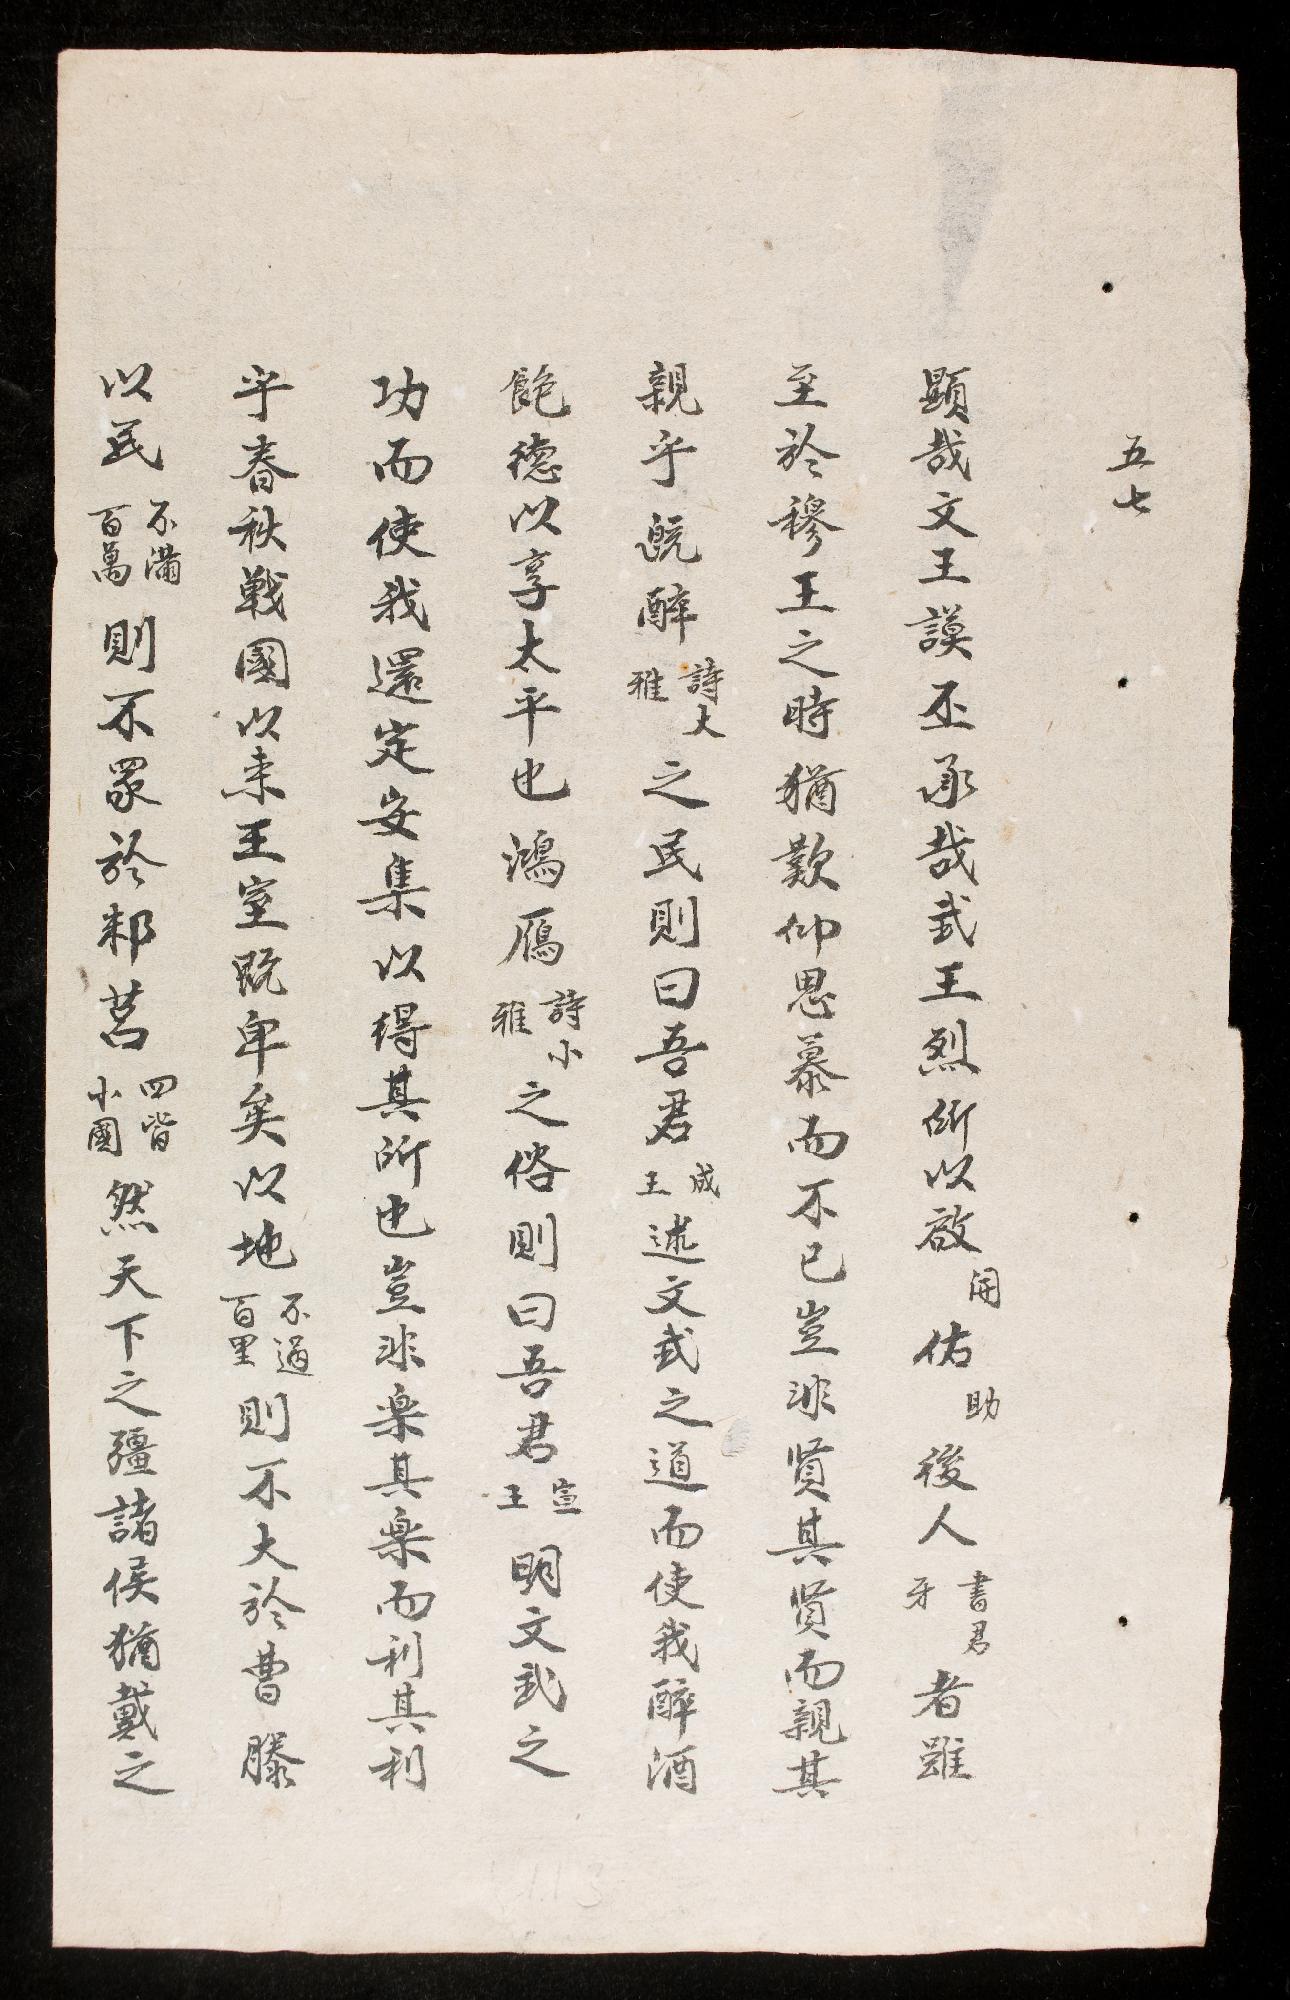 五七
顕哉文王謨丕承哉武王烈所以啟開佑助後人書君牙者雖
至於穆王之時猶歎仰思慕而不已豈非賢其賢而親其
親乎既醉詩大雅之民則曰吾君成王述文武之道而使我醉酒
飽德以享太平也鴻鴈詩小雅之俗則曰吾君宣王明文武之
功而使我還定安集以得其所也豈非楽其楽而利其利
乎春秋戦國以来王室既卑矣以地不過百里則不大於曹滕
以民不満百萬則不眾於邾莒四皆小國然天下之彊諸侯猶戴之